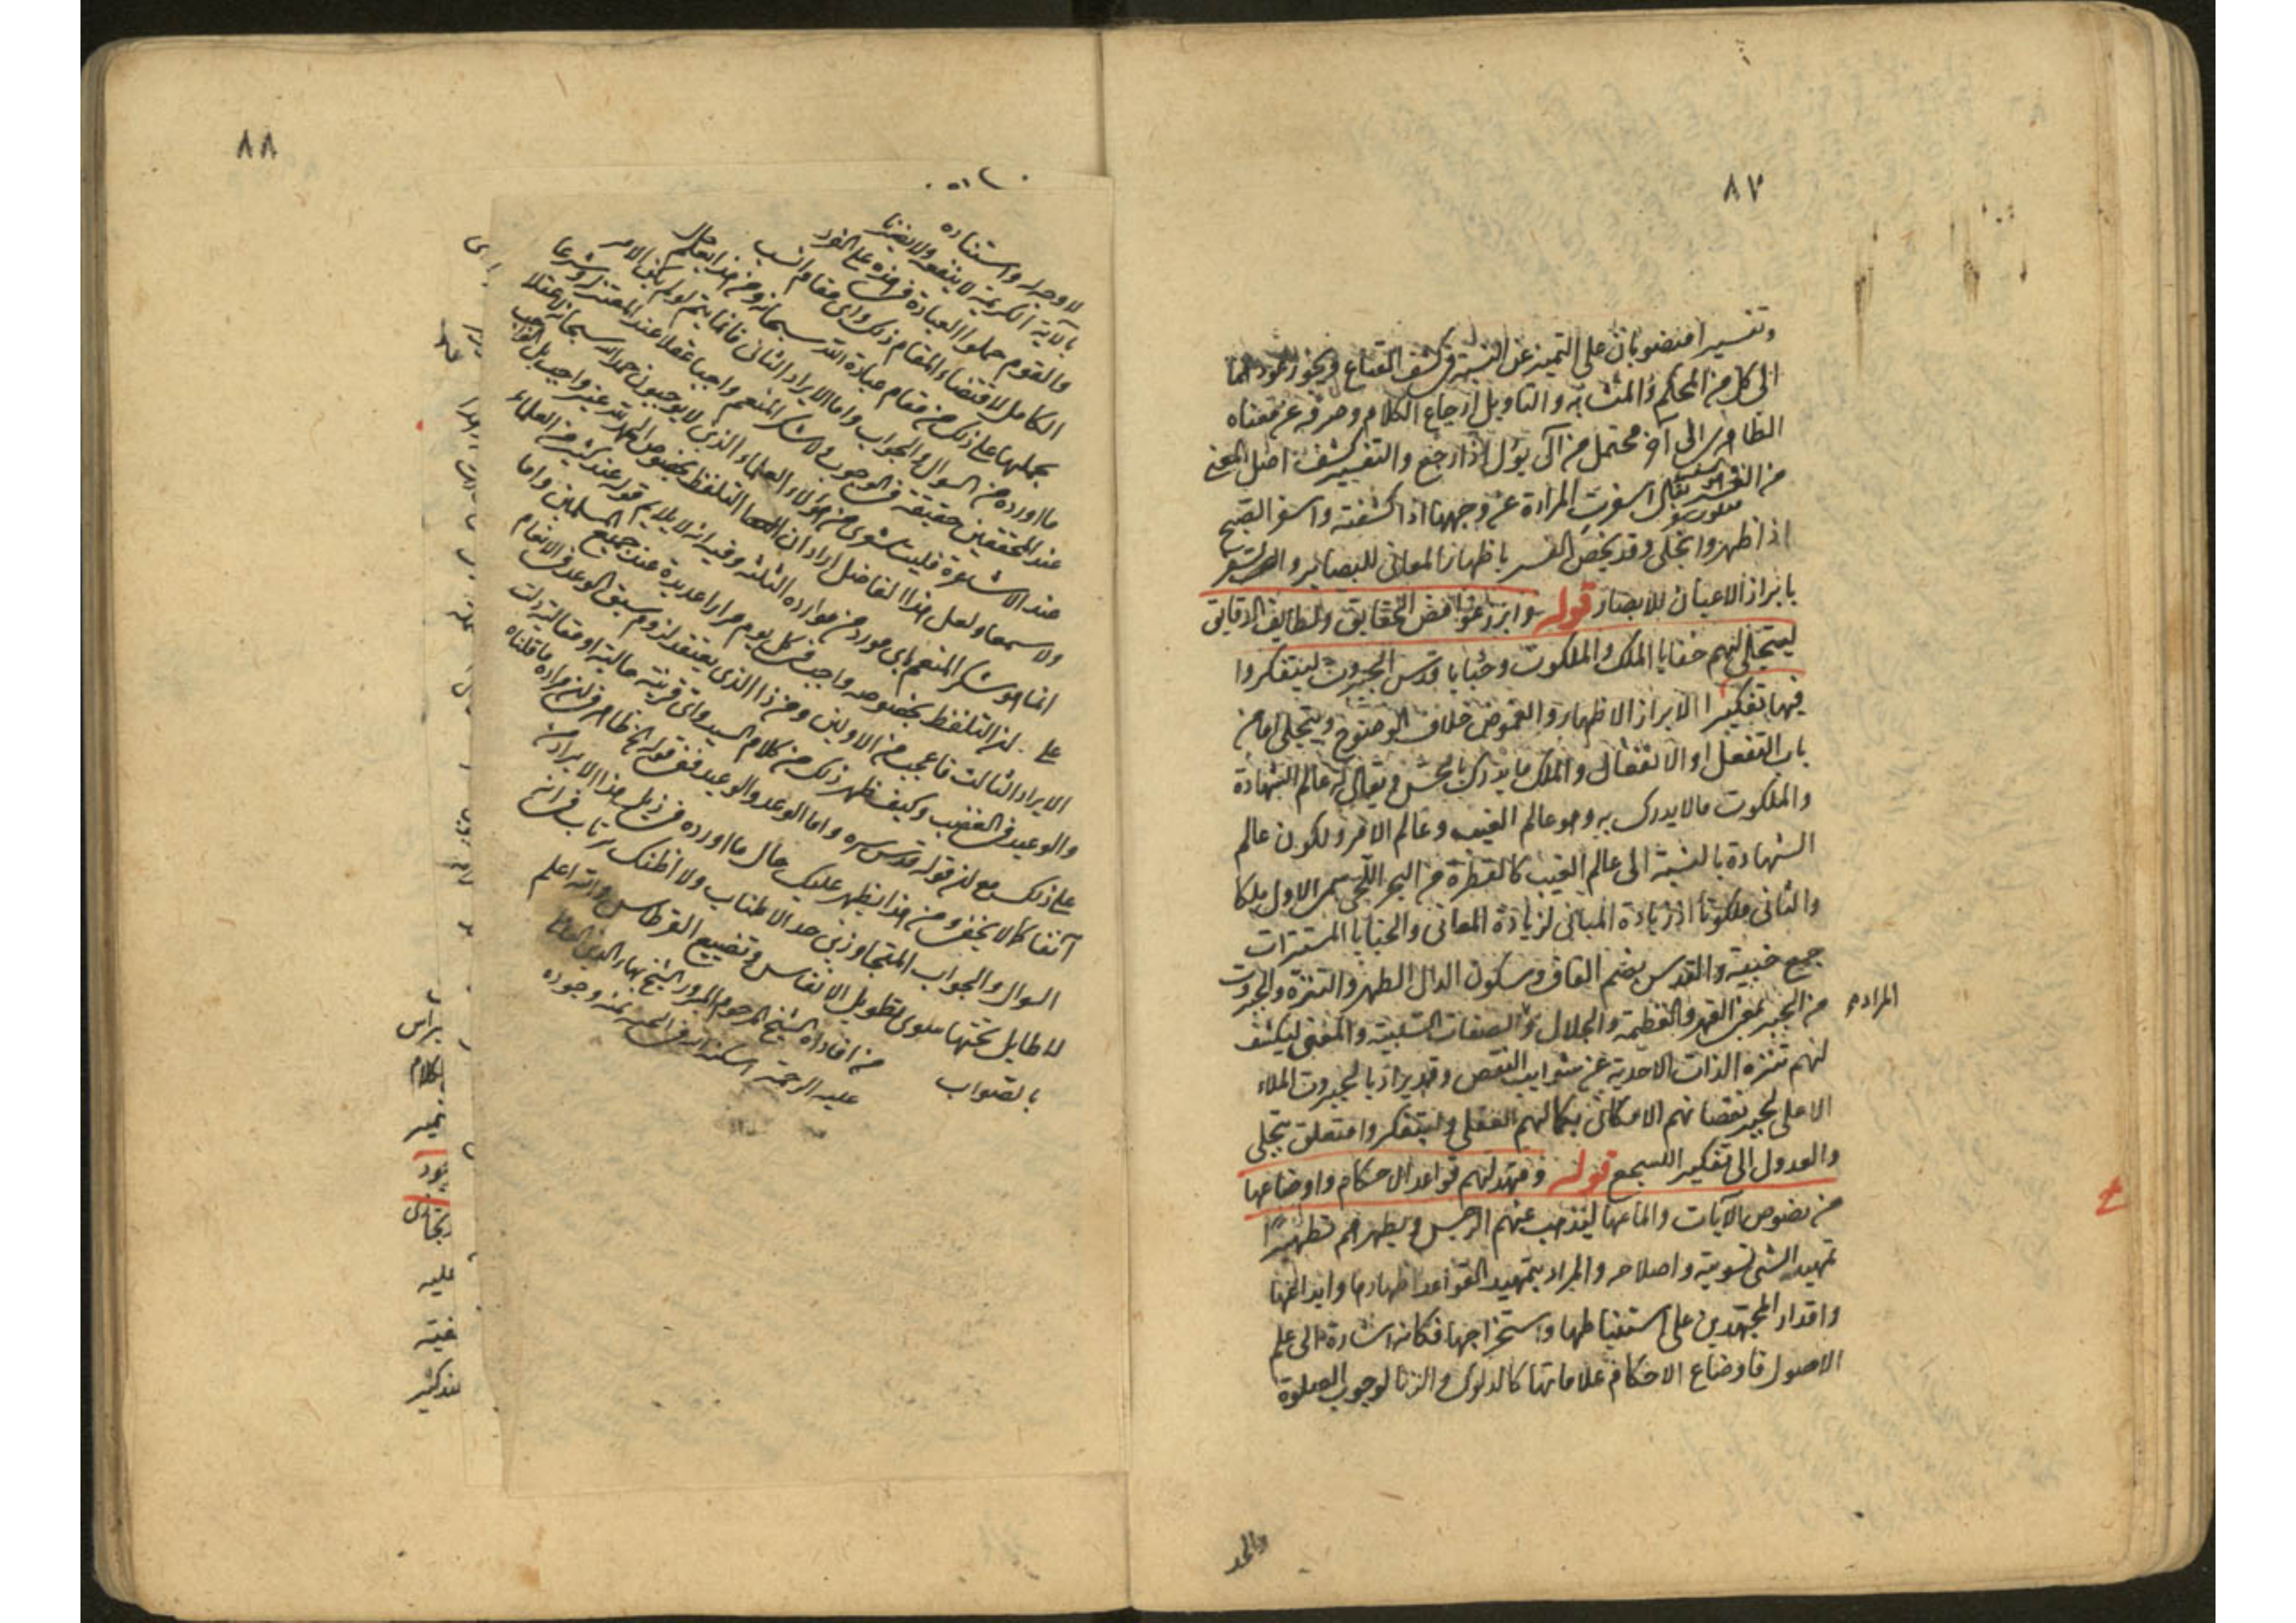 ٨٧
وتفسيرا منصوبان على التميز عن النسبة في كشف القناع ويجوز عودهما
الى كل من المحكم والمتشابه والتاويل ارجاع الكلام وصرفه عن معناه
الظاهر الى آخر محتمل من آل يؤل اذا رجع والتفسير كشف اصل المعنى
من الفسر يقال اسفرت المراءة عن وجهها اذا كشفته واسفر الصبح
اذا ظهر وانجلى وقد يخص الفسر باظهار المعانى للبصائر والسفر
بابراز الاعيان للابصار قوله وابرز غوامض الحقايق ولطايف الدقايق
ليتجلى لهم خفايا الملك والملكوت وخبايا قدس الجبروت ليتفكروا
فيها تفكيرا الابراز الاظهار والغموض خلاف الوضوح ويتجلى اما من
باب التفعل او الانفعال والملك ما يدرك بالحس ويقال له عالم الشهادة
والملكوت مالا يدرك به وهو عالم الغيب وعالم الامر ولكون عالم
الشهادة بالنسبة الى عالم الغيب كالقطرة من البحر اللجي سمى الاول ملكا
والثانى ملكوتا اذ زيادة المبانى لزيادة المعانى والخبايا المستترات
جمع خبيية والقدس بضم القاف وسكون الدال الطهر والتنزه والجبروت
من الجبر بمعنى القهر والعظمة والجلال والصفات السلبية والمعنى ليكشف
المراد به
لهم تنزه الذات الاحدية عن شوايب النقص وقد يراد بالجبروت الملاء
الاعلى لجبر نقصانهم الامكانى بكمالهم الفعلى وليتفكروا متعلق بتجلى
والعدول الى تفكير للسجع قوله ومهد لهم قواعد الاحكام واوضاعها
من نصوص الآيات والماعها ليذهب عنهم الرجس ويطهرهم تطهيرا
تمهيد الشى تسويته واصلاحه والمراد بتمهيد القواعد اظهارها وابداعها
واقدار المجتهدين على استنباطها واستخراجها فكانه اشارة الى علم
الاصول فاوضاع الاحكام علاماتها كالدلوك والزنا لوجوب الصلوة
والحد
٨٨
لا وجه له واستناده
بالآية الكريمة لا ينفعه ولا يضرنا
والقوم حملوا العبادة في هذه على الفرد
الكامل لاقتضاء المقام ذلك واى مقام انسب
بحملها على ذلك من مقام عبادة الله سبحانه ومن هذا يعلم حال
ما اورده من السوال والجواب واما الايراد الثانى فانما يتم لو لم يكن الامر
عند المحققين حقيقة في الوجوب ولا شكر المنعم واجبا عقلا عند المعتزلة وشرعا
عند الاشاعرة فليت شعرى من هؤلاء العلماء الذين لا يوجبون حمد الله سبحانه لا عقلا
ولا سمعا ولعل هذا الفاضل اراد ان التلفظ بخصوص الحمد لله غير واجب بل الواجب
انما هو شكر المنعم باى مورد من موارده الثلثة وفيه انه لا يلايم قوله عند كثير من العلماء
على التلفظ بخصوصه واجب في كل يوم مرارا عديدة عند جميع المسلمين واما
الايراد الثالث فاعجب من الاولين ومن ذا الذى يعتقد لزوم سبق الوعد في الانعام
والوعيد في الغضب وكيف ظهر ذلك من كلام السيد واى قرينة حالية او مقالية دلت
على ذلك مع ان قوله قدس سره واما الوعد والوعيد ففى قوله الخ ظاهر في ان مراده ما قلناه
آنفا كما لا يخفى ومن هذا يظهر عليك حال ما اورده في ذيل هذا الايراد من
السوال والجواب المتجاوزين حد الاطناب ولا اظنك ترتاب في انه
لا طايل تحتها سوى تطويل الانفاس وتضييع القرطاس والله اعلم
بالصواب
من افادات الشيخ المرحوم المبرور الشيخ بهاء الدين العاملى
عليه الرحمة اسكنه الله في الجنة بمنه وجوده
براس
كلام
عليه